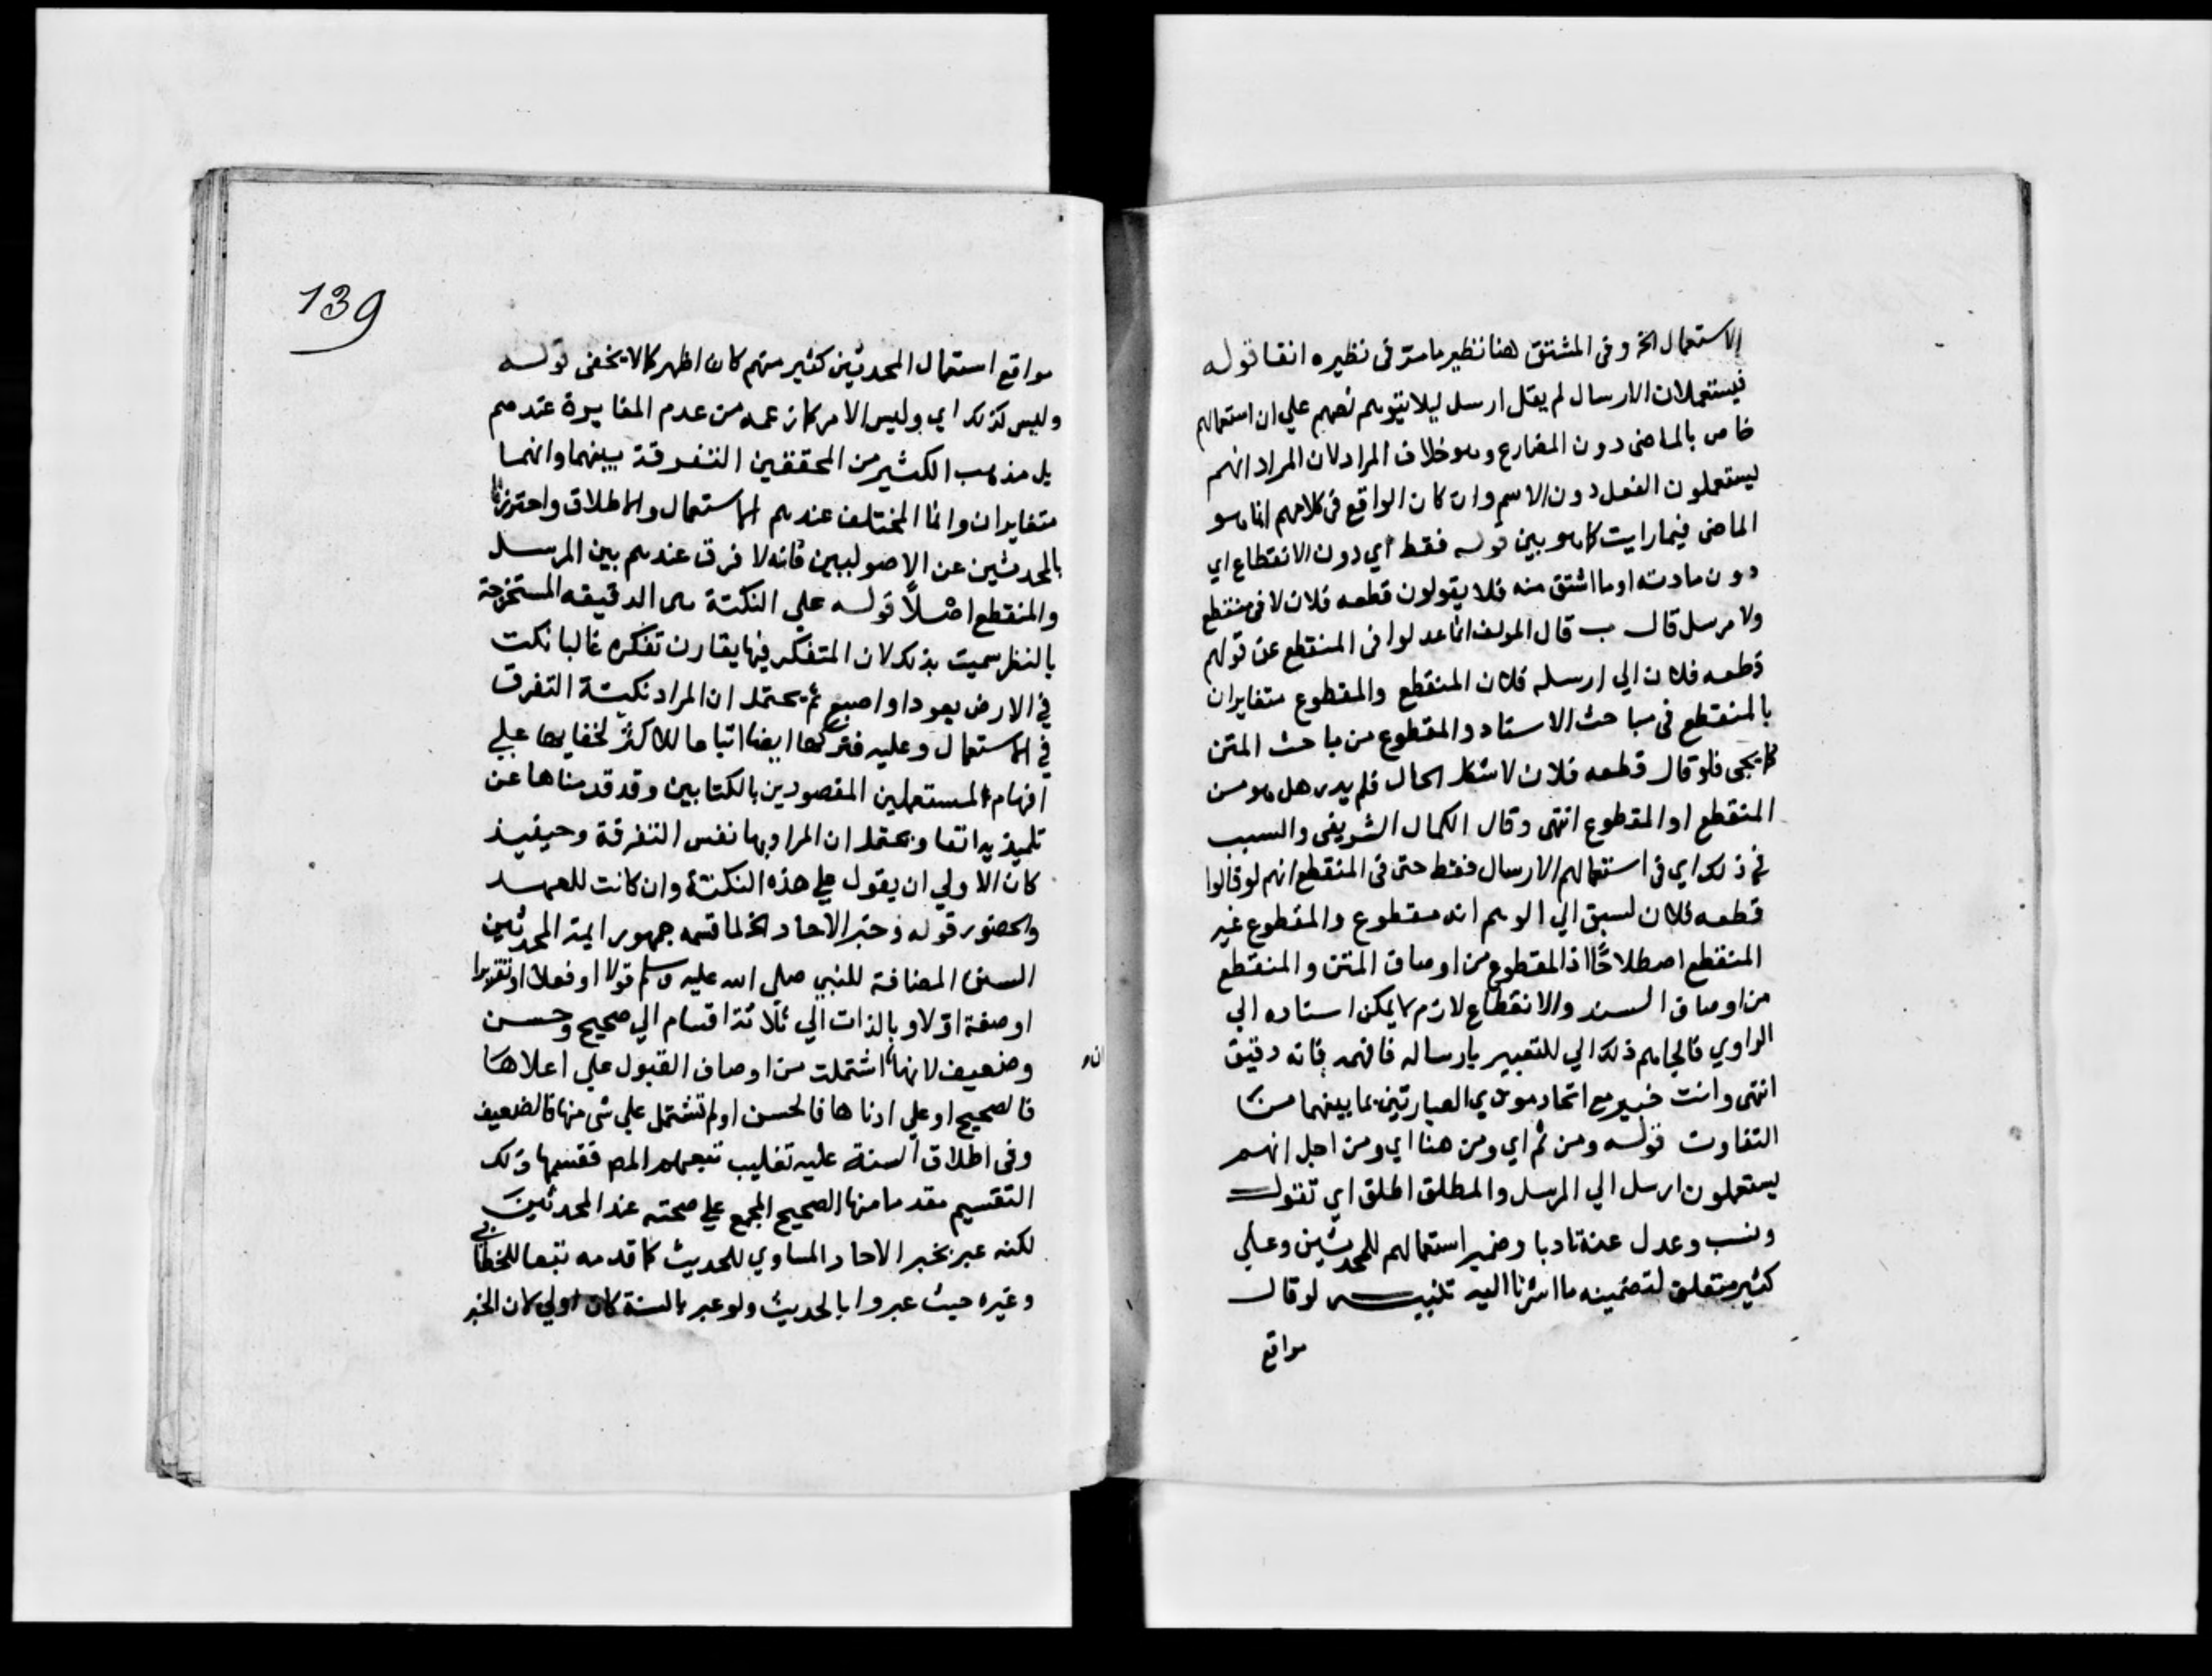 الاستعمال الخ وفى المشتق هنا نظير ما مر فى نظيره انفا قوله
فيستعملان الارسال لم يقل ارسل ليلا يتوهم نصهم علي ان استعمالهم
خاص بالماضى دون المضارع وهو خلاف المراد لان المراد انهم
يستعملون الفعل دون الاسم وان كان الواقع فى كلامهم انما هو
الماضى فيما رايت كما هو بين قوله فقط اي دون الانقطاع اي
دون مادته او ما اشتق منه فلا يقولون قطعه فلان لا فى منقطع
ولا مرسل قال ب قال المولف انما عدلوا فى المنقطع عن قولهم
قطعه فلان الي ارسله فلان المنقطع والمقطوع متغايران
بالمنقطع فى مباحث الاسناد والمقطوع من باحث المتن
كما يجى فلو قال قطعه فلان لاشكل الحال فلم يدر هل هو من
المنقطع او المقطوع انتهى وقال الكمال الشريفى والسبب
فى ذلك اي فى استعمالهم الارسال فقط حتى فى المنقطع انهم لو قالوا
قطعه فلان لسبق الي الوهم انه مقطوع والمقطوع غير
المنقطع اصطلاحًا اذ المقطوع من اوصاف المتن والمنقطع
من اوصاف السند والانقطاع لازم لا يمكن اسناده الي
الراوي فالجاهم ذلك الي للتعبير بارساله فافهمه فانه دقيق
انتهى وانت خبير مع اتحاد مودي العبارتين بما بينهما من
التفاوت قوله ومن ثم اي ومن هنا اي ومن اجل انهم
يستعملون ارسل الي المرسل والمطلق اطلق اي تقول
ونسب وعدل عنه تادبا وضمير استعمالهم للمحدثين وعلي
كثير متعلق لتضمينه ما اشرنا اليه تنبيه لو قال
مواقع
139
مواقع استعمال المحدثين كثير منهم كان اظهر كما لا يخفى قوله
وليس كذلك اي وليس الامر كما زعمه من عدم المغايرة عندهم
بل مذهب الكثير من المحققين التفرقة بينهما وانهما
متغايران وانما المختلف عندهم الاستعمال والاطلاق واحترزنا
بالمحدثين عن الاصوليين فانه لا فرق عندهم بين المرسل
والمنقطع اصلًا قوله علي النكتة هى الدقيقه المستخرجة
بالنظر سميت بذلك لان المتفكر فيها يقارن تفكره غالبا نكت
في الارض بعود او اصبع ثم يحتمل ان المراد نكتة التفرق
في الاستعمال وعليه فتركها ايضا اتباعا للاكثر لخفايها علي
افهام المستعملين المقصودين بالكتابين وقد قدمناها عن
تلميذيه انفا ويحتمل ان المراد بها نفس التفرقة وحينيذ
كان الاولي ان يقول علي هذه النكتة وان كانت للعهد
والحضور قوله وخبر الاحاد الخ لما قسمه جمهور ايمة المحدثين
السنن المضافة للنبي صلى الله عليه وسلم قولا او فعلا او تقريرا
او صفة اولا وبالذات الي ثلاثة اقسام الي صحيح وحسن
ان
وضعيف لانها اشتملت من اوصاف القبول علي اعلاها
فالصحيح او علي ادناها فالحسن او لم تشتمل علي شى منها فالضعيف
وفى اطلاق السنة عليه تغليب تبعهم المص فقسمها ذلك
التقسيم مقدما منها الصحيح المجمع علي صحته عند المحدثين
لكنه عبر بخبر الاحاد المساوي للحديث كما قدمه تبعا للخطابي
وغيره حيث عبروا بالحديث ولو عبر بالسنة كان اولي لان الخبر